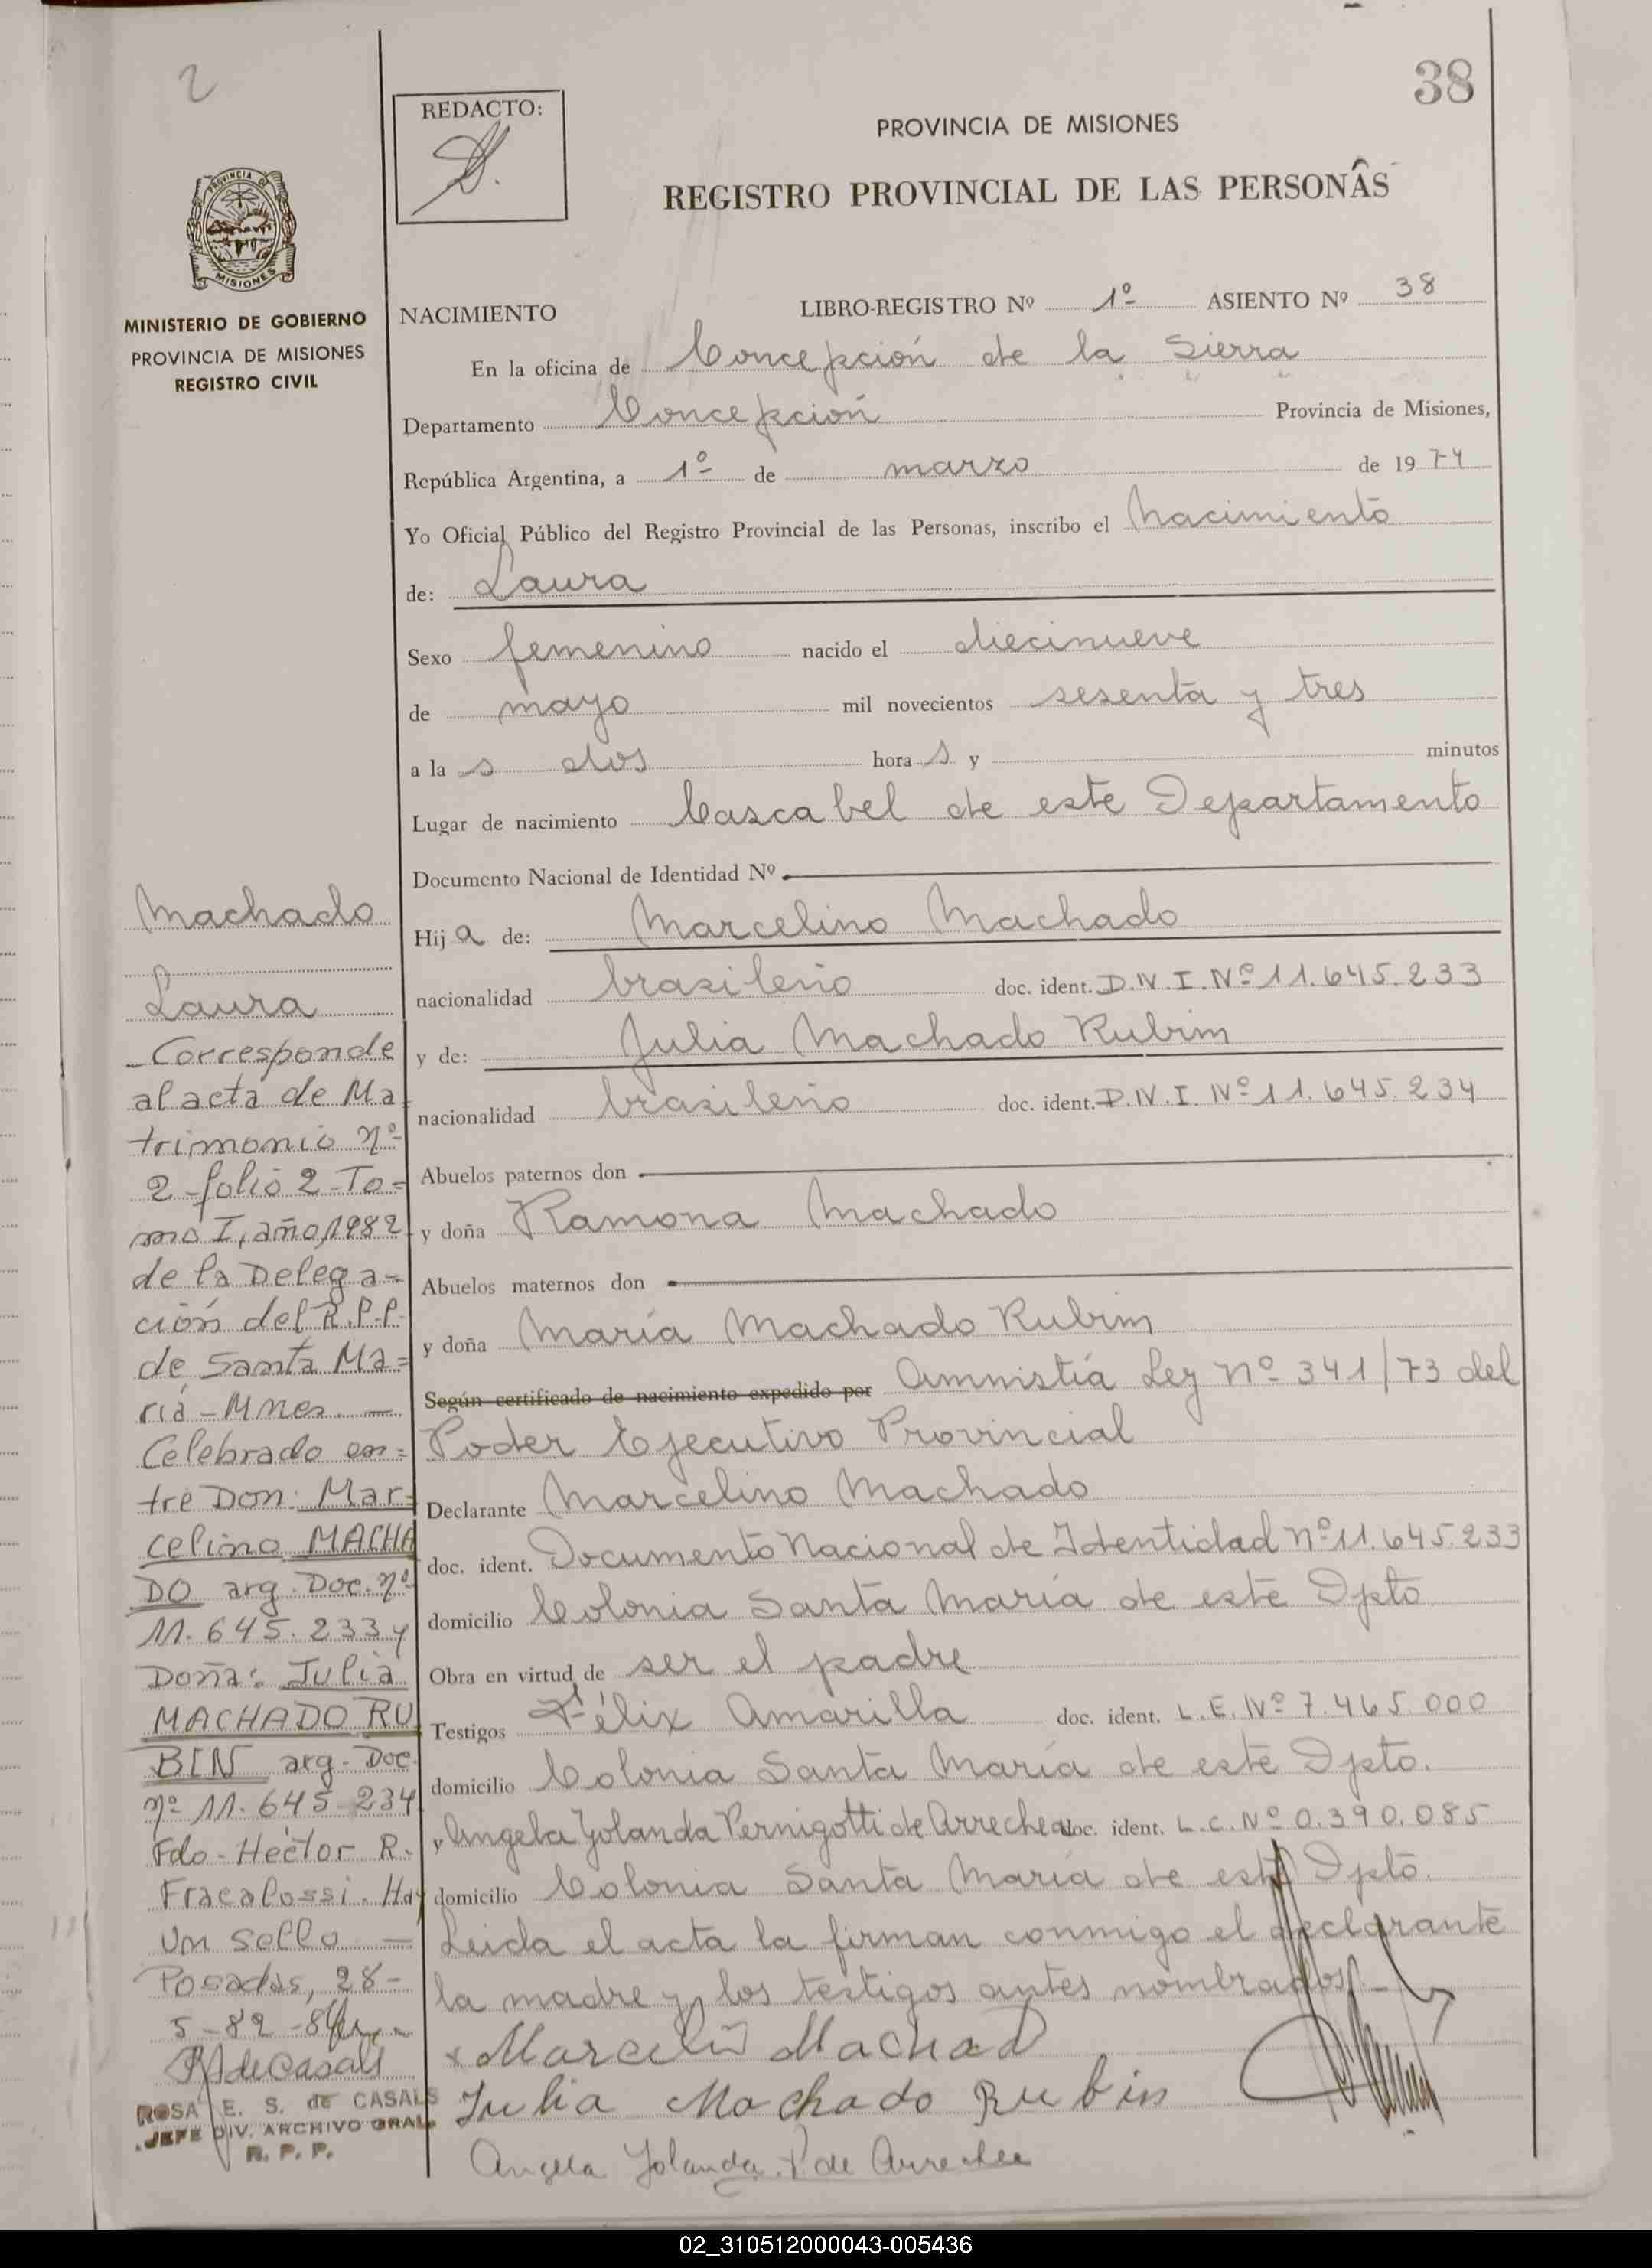 2
38
REDACTO:
PROVINCIA DE MISIONES
REGISTRO PROVINCIAL DE LAS PERSONAS
PROVINCIA DE
MISIONES
MINISTERIO DE GOBIERNO
PROVINCIA DE MISIONES
REGISTRO CIVIL
NACIMIENTO LIBRO-REGISTRO Nº 1º ASIENTO Nº 38
En la oficina de Concepción de la Sierra
Departamento Concepción Provincia de Misiones,
República Argentina, a 1º de marzo de 1974
Yo Oficial Público del Registro Provincial de las Personas, inscribo el Nacimiento
de: Laura
Sexo femenino nacido el diecinueve
de mayo mil novecientos sesenta y tres
a la s dos hora s y minutos
Lugar de nacimiento Cascabel de este Departamento
Documento Nacional de Identidad Nº
Hij a de: Marcelino Machado
nacionalidad brasileño doc. ident. D.N.I. Nº 11.645.233
y de: Julia Machado Rubim
nacionalidad brasileño doc. ident. D.N.I. Nº 11.645.234
Abuelos paternos don
y doña Ramona Machado
Abuelos maternos don
y doña María Machado Rubim
Según certificado de nacimiento expedido por Amnistía Ley Nº 341/73 del
Poder Ejecutivo Provincial
Declarante Marcelino Machado
doc. ident. Documento Nacional de Identidad Nº 11.645.233
domicilio Colonia Santa María de este Dpto
Obra en virtud de ser el padre
Testigos Félix Amarilla doc. ident. L.E. Nº 7.465.000
domicilio Colonia Santa María de este Dpto.
y Angela Yolanda Pernigotti de Arrechea doc. ident. L.C. Nº 0.390.085
domicilio Colonia Santa María de este Dpto.
Leida el acta la firman conmigo el declarante
la madre y los testigos antes nombrados.-
x Marcelin Machad
Julia Machado Rubin
Angela Yolanda P. de Arrechea
Machado
Laura
- Corresponde
al acta de Ma
trimonio nº
2 - folio 2 - To=
mo I, año 1982
de la Delega=
ción del R.P.P.
de Santa Ma=
ría - Mnes. —
Celebrado en=
tre Don: Mar=
celino MACHA
DO arg. Doc. nº
11.645.233 y
Doña: Julia
MACHADO RU
BIN arg. Doc.
nº 11.645.234
Fdo - Héctor R.
Fracalossi. Hay
un sello —
Posadas, 28-
5-82
R de Casals
ROSA E. S. de CASALS
JEFE DIV. ARCHIVO GRAL.
R. P. P.
02_310512000043-005436